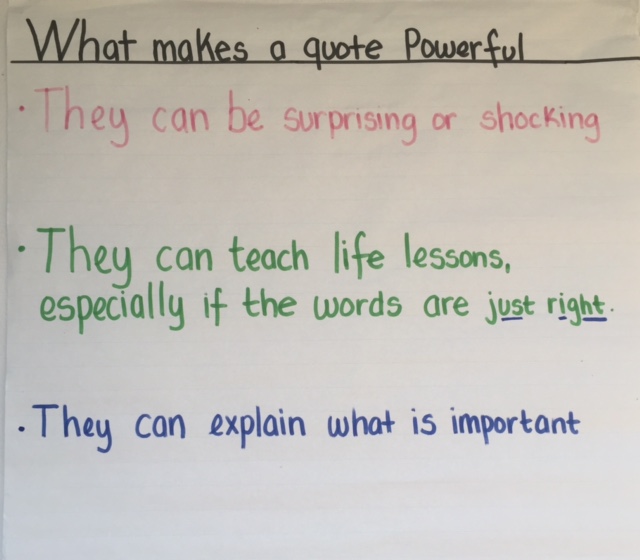 What makes a quote Powerful
· They can be surprising or shocking
· They can teach life lessons,
especially if the words are just right.
· They can explain what is important